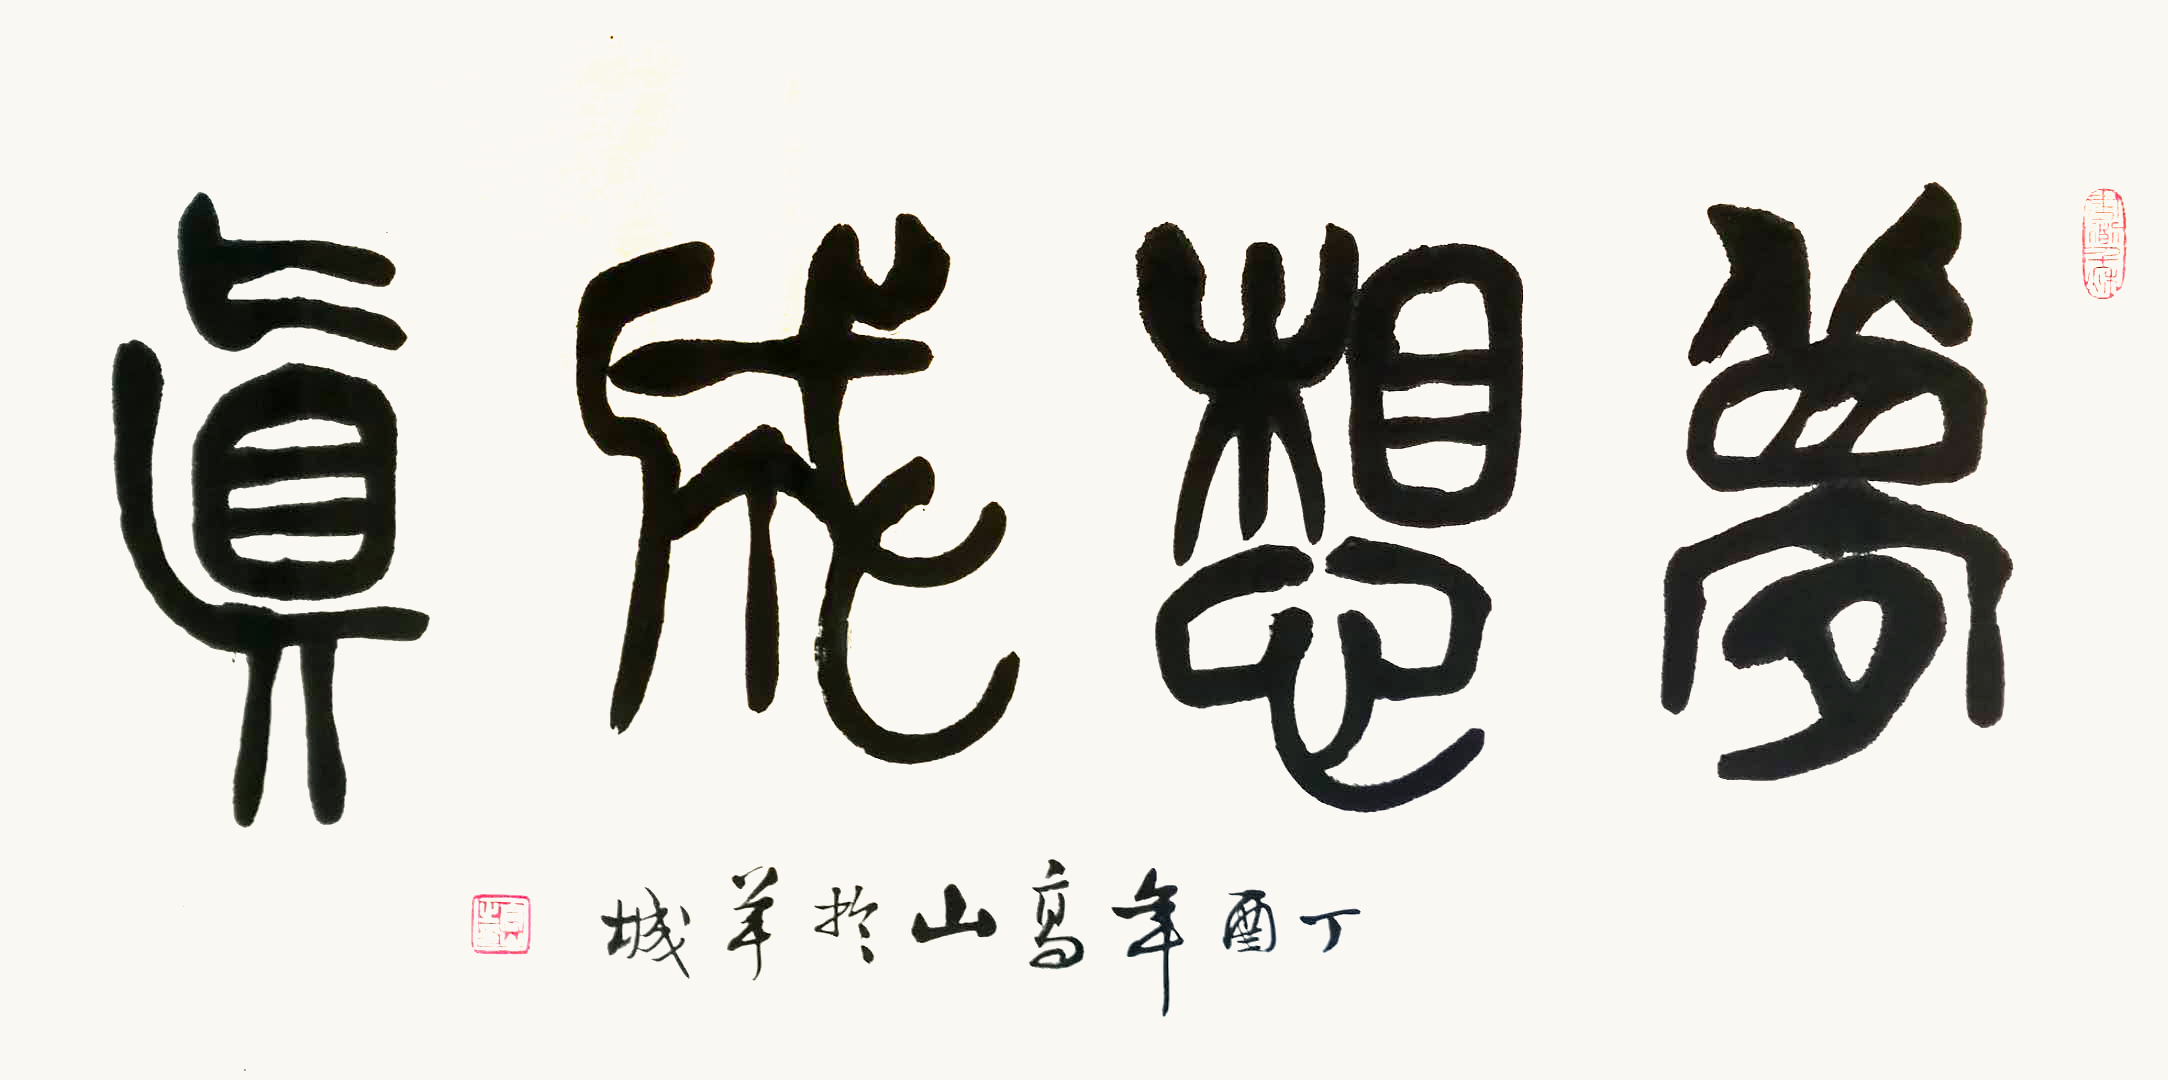 夢想成真
丁酉年高山於羊城